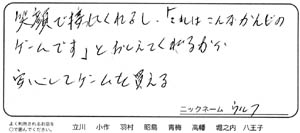 笑顔で接してくれるし、「これはこんなかんじの
ゲームです」とおしえてくれるから
安心してゲームを買える
ニックネーム ウルフ
よく利用されるお店を
○で囲んでください。 立川 小作 羽村 昭島 青梅 高幡 堀之内 八王子